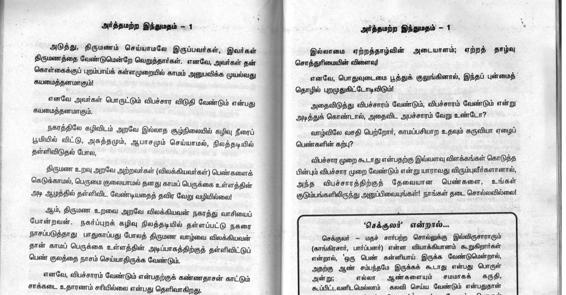 அர்த்தமற்ற இந்துமதம் – 1
அடுத்து, திருமணம் செய்யாமலே இருப்பவர்கள், இவர்கள்
திருமணத்தை வேண்டுமென்றே வெறுத்தார்கள். எனவே, அவர்கள் தன்
கொள்கைக்குப் புறம்பாய்க் கள்ளமுறையில் காமம் அனுபவிக்க முயல்வது
கயமைத்தனமாகும்!
எனவே அவர்கள் பொருட்டும் விபச்சார விடுதி வேண்டும் என்பது
கயமைத்தனமாகும்.
நகரத்திலே கழிவிடம் அறவே இல்லாத சூழ்நிலையில் கழிவு நீரைப்
பூமியில் விட்டு, அசுத்தமும், ஆபாசமும் செய்யாமல், நிலத்தடியில்
தள்ளிவிடுதல் போல,
திருமண உறவு அறவே அற்றவர்கள் (விலக்கியவர்கள்) பெண்களைக்
கெடுக்காமல், பெருமை குலையாமல் தனது காமப் பெருக்கை உள்ளத்தின்
அடி ஆழத்தில் தள்ளிவிட வேண்டியதைத் தவிர வேறு வழியில்லை!
ஆம், திருமண உறவை அறவே விலக்கியவன் நகரத்து வாசியைப்
போன்றவன். நகர்ப்புறக் கழிவு நிலத்தடியில் தள்ளப்பட்டு நகரை
நாசப்படுத்தாது பாதுகாப்பது போலத் திருமண வாழ்வை விலக்கியவன்
தான் காமப் பெருக்கை உள்ளத்தின் அடிப்பாகத்திற்குத் தள்ளிவிட்டுப்
பெண் குலத்தை நாசம் செய்யாதிருக்க வேண்டும்.
எனவே, விபச்சாரம் வேண்டும் என்பதற்குக் கண்ணதாசன் காட்டும்
சாக்கடை உதாரணம் சரியில்லை என்பது தெளிவாகிறது.
அர்த்தமற்ற இந்துமதம் – 1
இல்லாமை ஏற்றத்தாழ்வின் அடையாளம்; ஏற்றத் தாழ்வு
சொத்துரிமையின் விளைவு!
எனவே, பொதுவுடைமை பூத்துக் குலுங்கினால், இந்தப் புன்மைத்
தொழில் பறமுதுகிட்டோடிவிடும்!
அதைவிடுத்து விபச்சாரம் வேண்டும், விபச்சாரம் வேண்டும் என்று
அடித்துக் கொண்டால், அதைவிட அபச்சாரம் வேறு உண்டோ?
வாழ்விலே வசதி பெற்றோர், காமப்பசியாற உதவும் கருவியா ஏழைப்
பெண்களின் கற்பு?
விபச்சார முறை கூடாது என்பதற்கு இவ்வளவு விளக்கங்கள் கொடுத்த
பின்பும் விபச்சார முறை வேண்டும் என்று யாராவது விரும்புவீர்களானால்,
அந்த விபச்சாரத்திற்குத் தேவையான பெண்களை, உங்கள்
குடும்பங்களிலிருந்து அனுப்பிவையுங்கள்! நாங்கள் தடை சொல்லவில்லை!
‘செக்குலர்’ என்றால்...
செக்குலர் – மதச் சார்பற்ற சொல்லுக்கு இவ்லிருசாராரும்
(காங்கிரசார், பார்ப்பனர்) என்ன வியாக்கியானம் கூறுகிறார்கள்
என்றால், ‘ஒரு பெண் கன்னியாய் இருக்க வேண்டுமென்றால்,
அதற்கு ஆண் சம்பந்தமே இருக்கக் கூடாது என்பது பொருள்
அன்று; எல்லா ஆண்களையும் சமமாகக் கருதி,
கூப்பிட்டவனிடமெல்லாம் கலவி செய்ய வேண்டும் என்பதுதான்